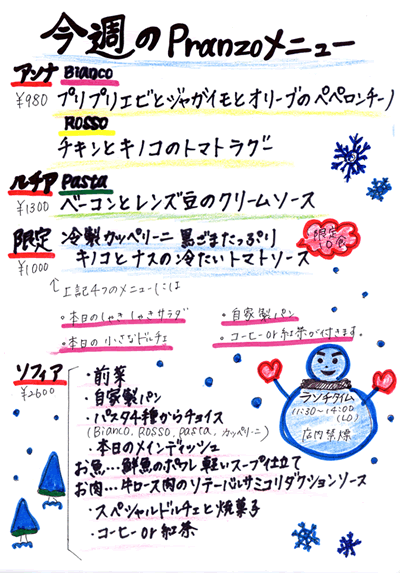 今週のPranzoメニュー
アンナ Bianco
¥980 プリプリエビとジャガイモとオリーブのペペロンチーノ
Rosso
チキンとキノコのトマトラグー
ルチア Pasta
¥1300 ベーコンとレンズ豆のクリームソース
限定 冷製カッペリーニ 黒ごまたっぷり
¥1000 キノコとナスの冷たいトマトソース
限定
10食
↑上記4つのメニューには
・本日のしゃきしゃきサラダ ・自家製パン
・本日の小さなドルチェ ・コーヒーor紅茶が付きます。
ソフィア
¥2600
・前菜
・自家製パン
・パスタ4種からチョイス
(Bianco, Rosso, Pasta, カッペリーニ)
・本日のメインディッシュ
お魚…鮮魚のポワレ 軽いスープ仕立て
お肉…牛ロース肉のソテーバルサミコリダクションソース
・スペシャルドルチェと焼菓子
・コーヒーor紅茶
ランチタイム
11:30~14:00
(LO)
店内禁煙